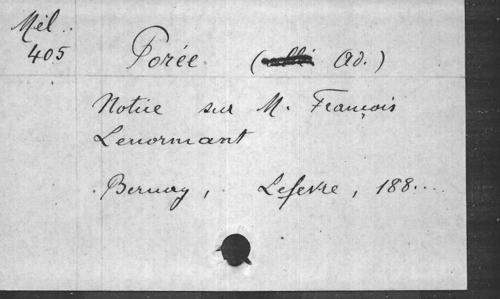 Mél.
405
Porée (Ad.)
Notice sur M. François
Lenormant
Bernay, Lefevre, 188...